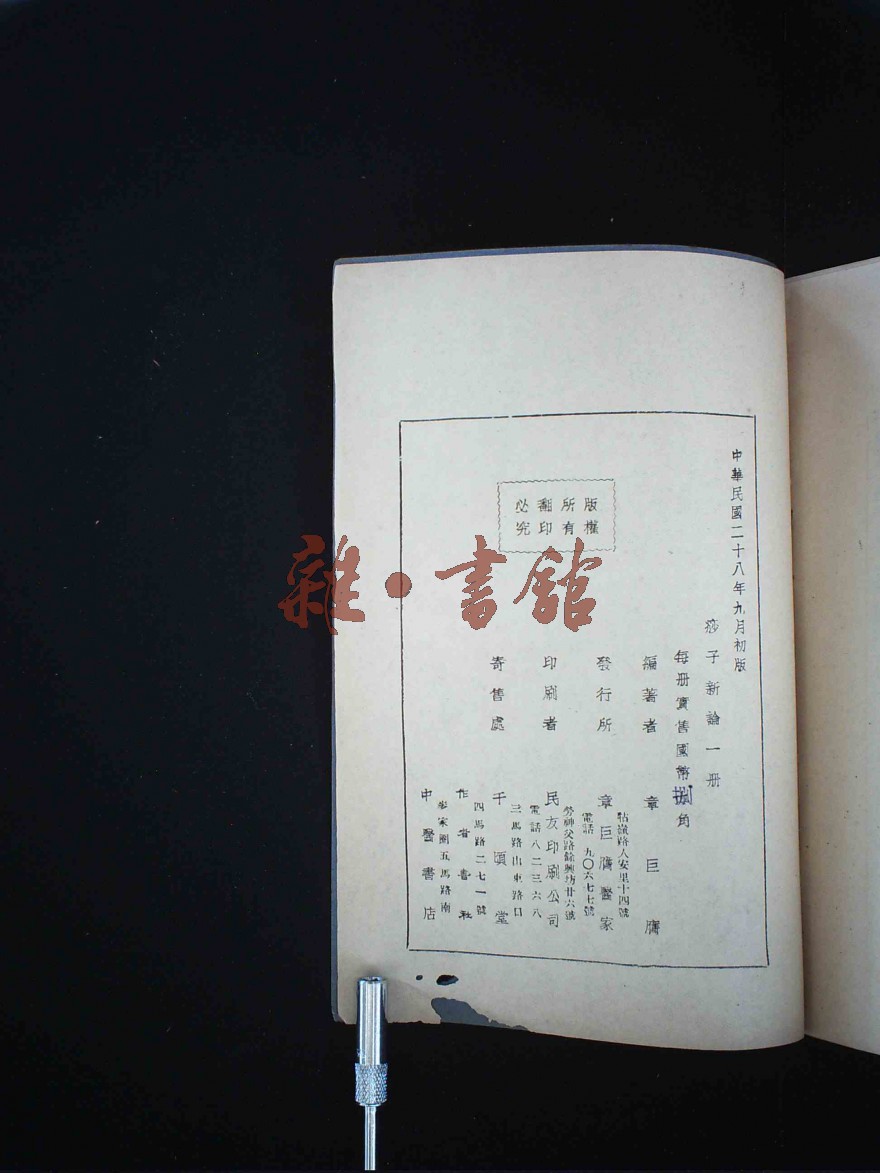 中華民國二十八年九月初版
痧子新論一册
每册實售國幣捌角
編著者 章巨膺
發行所 章巨膺醫家
牯嶺路人安里十四號
電話 九〇六七七號
印刷者 民友印刷公司
勞神父路餘興坊廿六號
電話八二三六八
寄售處 千頃堂
三馬路山東路口
作者書社
四馬路二七一號
中醫書店
麥家圈五馬路南
版權所有
翻印必究
雜·書館